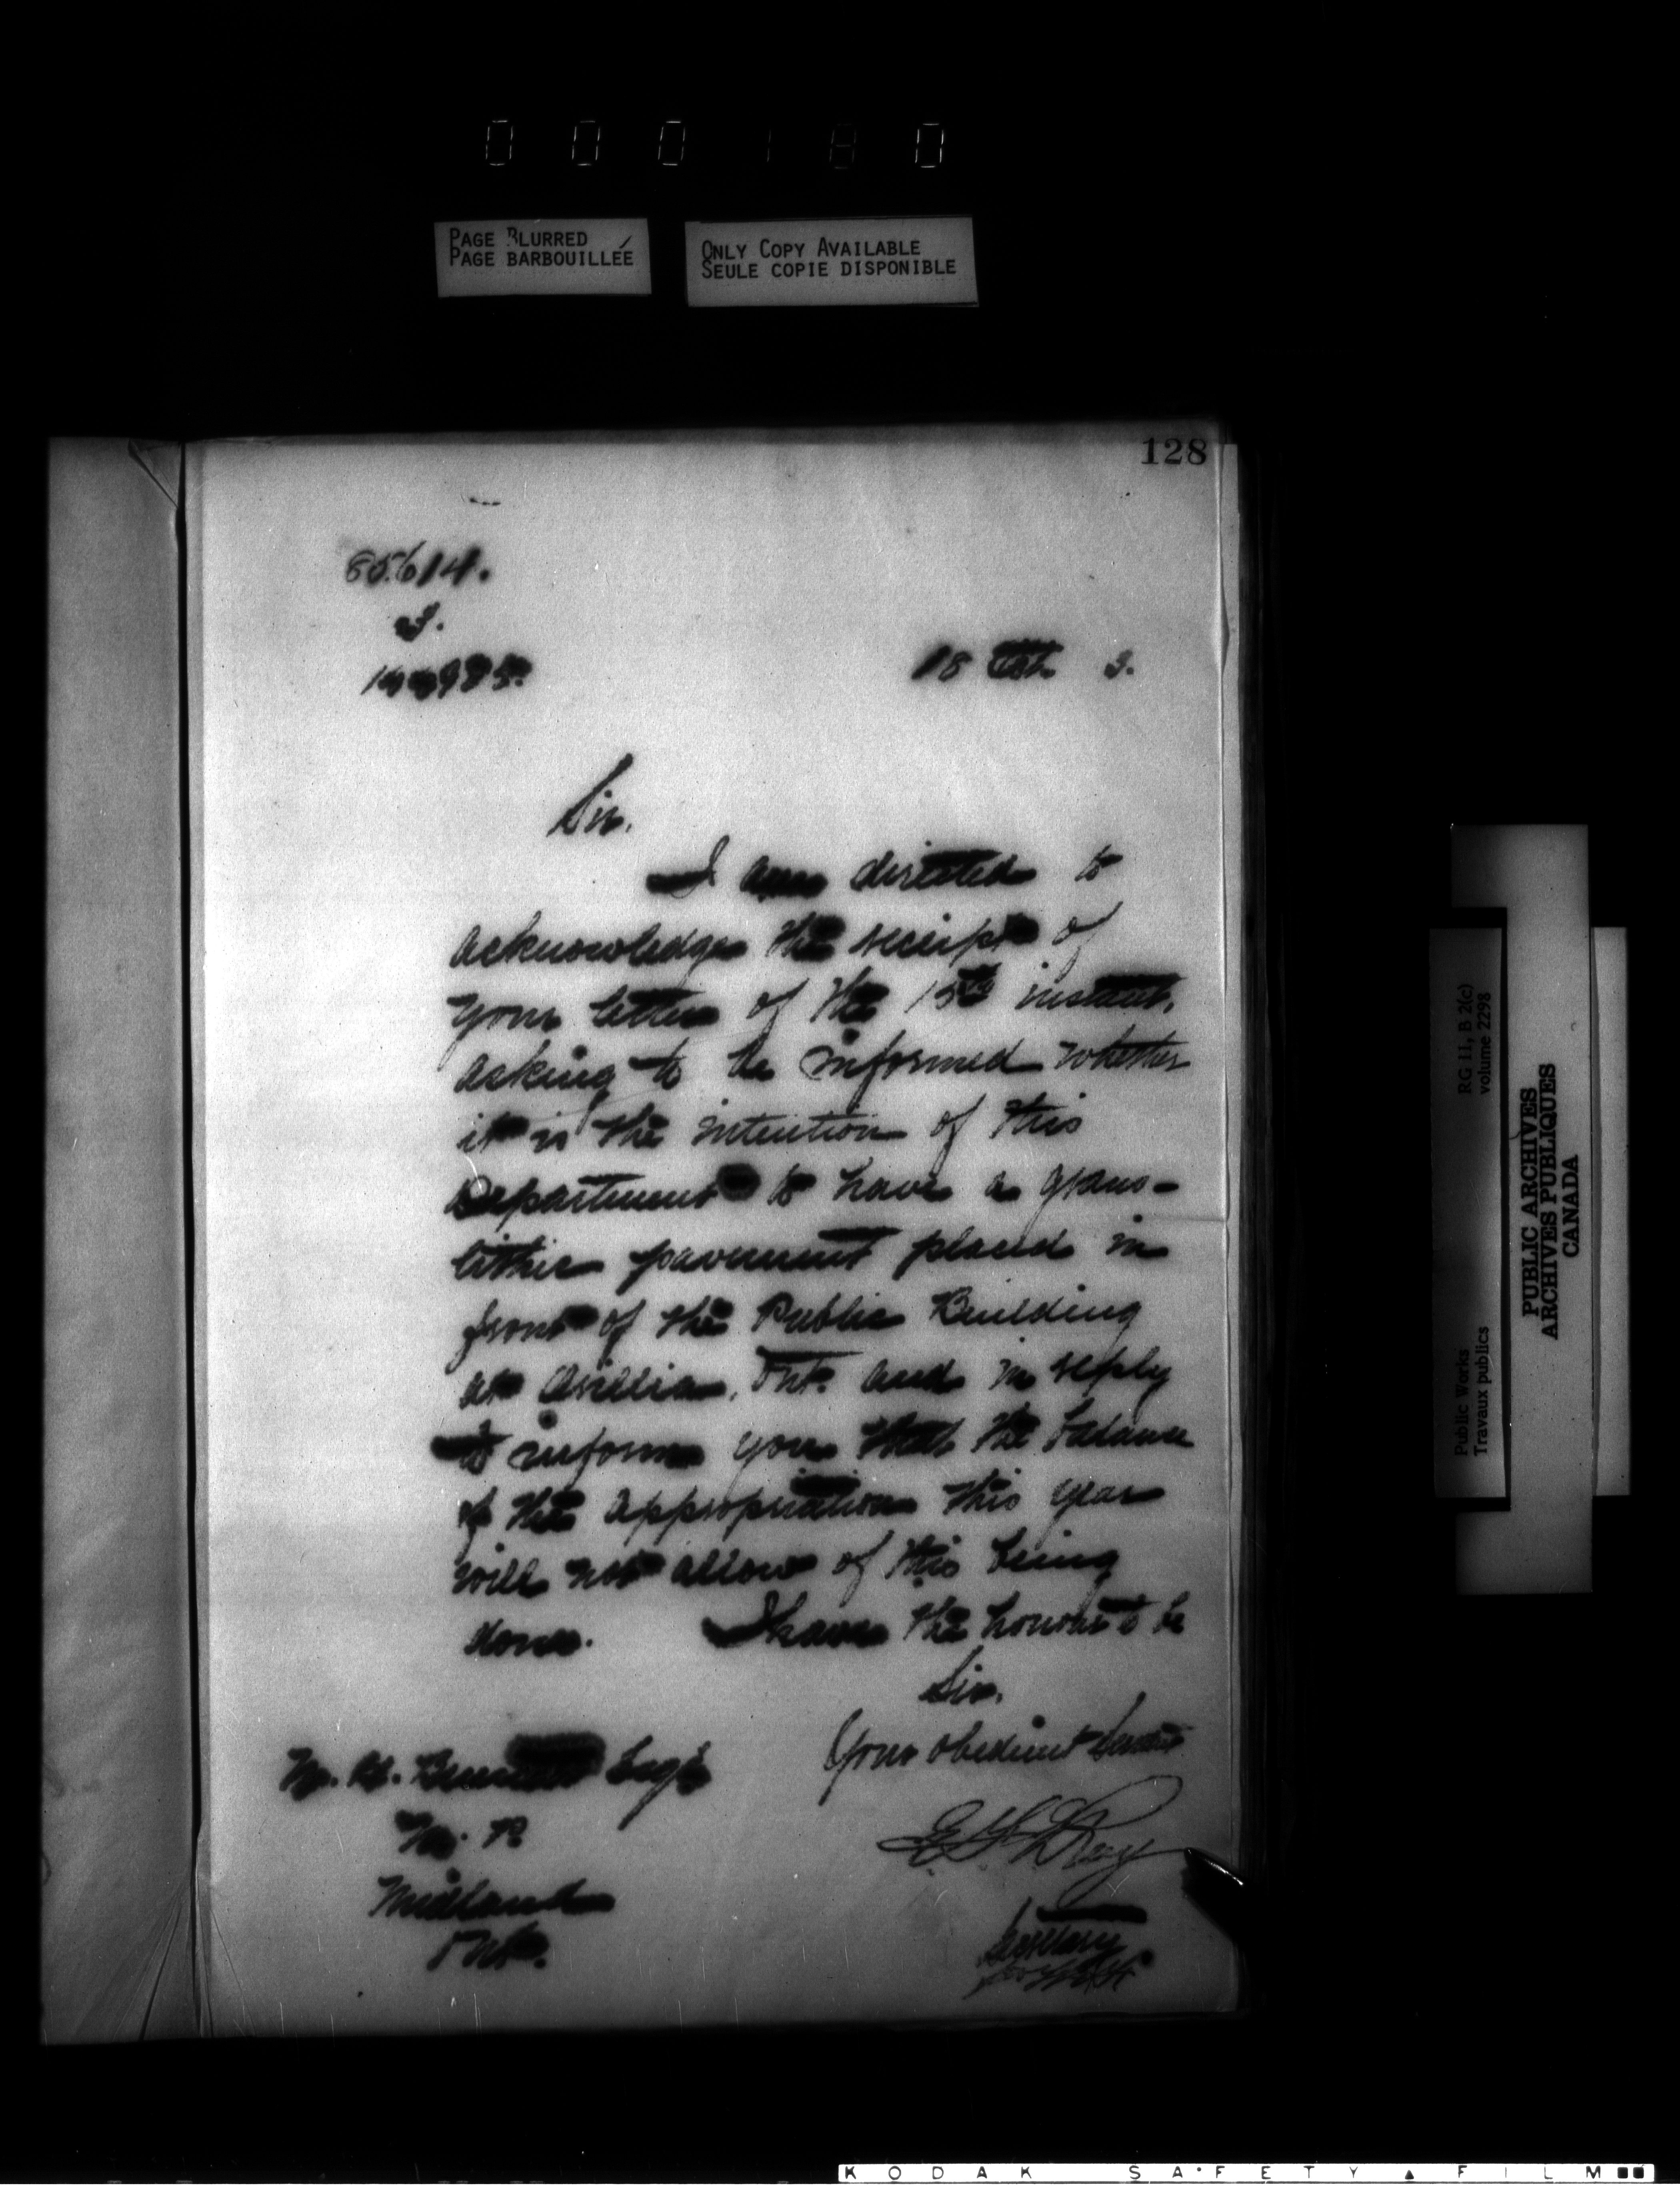 0 0 0 1 8 0
PAGE BLURRED
PAGE BARBOUILLÉE
ONLY COPY AVAILABLE
SEULE COPIE DISPONIBLE
128
85614.
18 Oct. 3.
Sir.
I am directed to
acknowledge the receipt of
your letter of the 15th instant,
asking to be informed whether
it is the intention of this
Department to have a grano-
lithic pavement placed in
front of the Public Building
at Orillia, Ont. and in reply
to inform you that the balance
of the appropriation this year
will not allow of this being
done. I have the honour to be
Sir,
Your obedient Servant
W. H. Bennett Esqr
M. P.
Midland
Ont.
Secretary
Public Works
Travaux publics
RG 11, B 2(c)
volume 2298
PUBLIC ARCHIVES
ARCHIVES PUBLIQUES
CANADA
KODAK SAFETY ▲ FILM